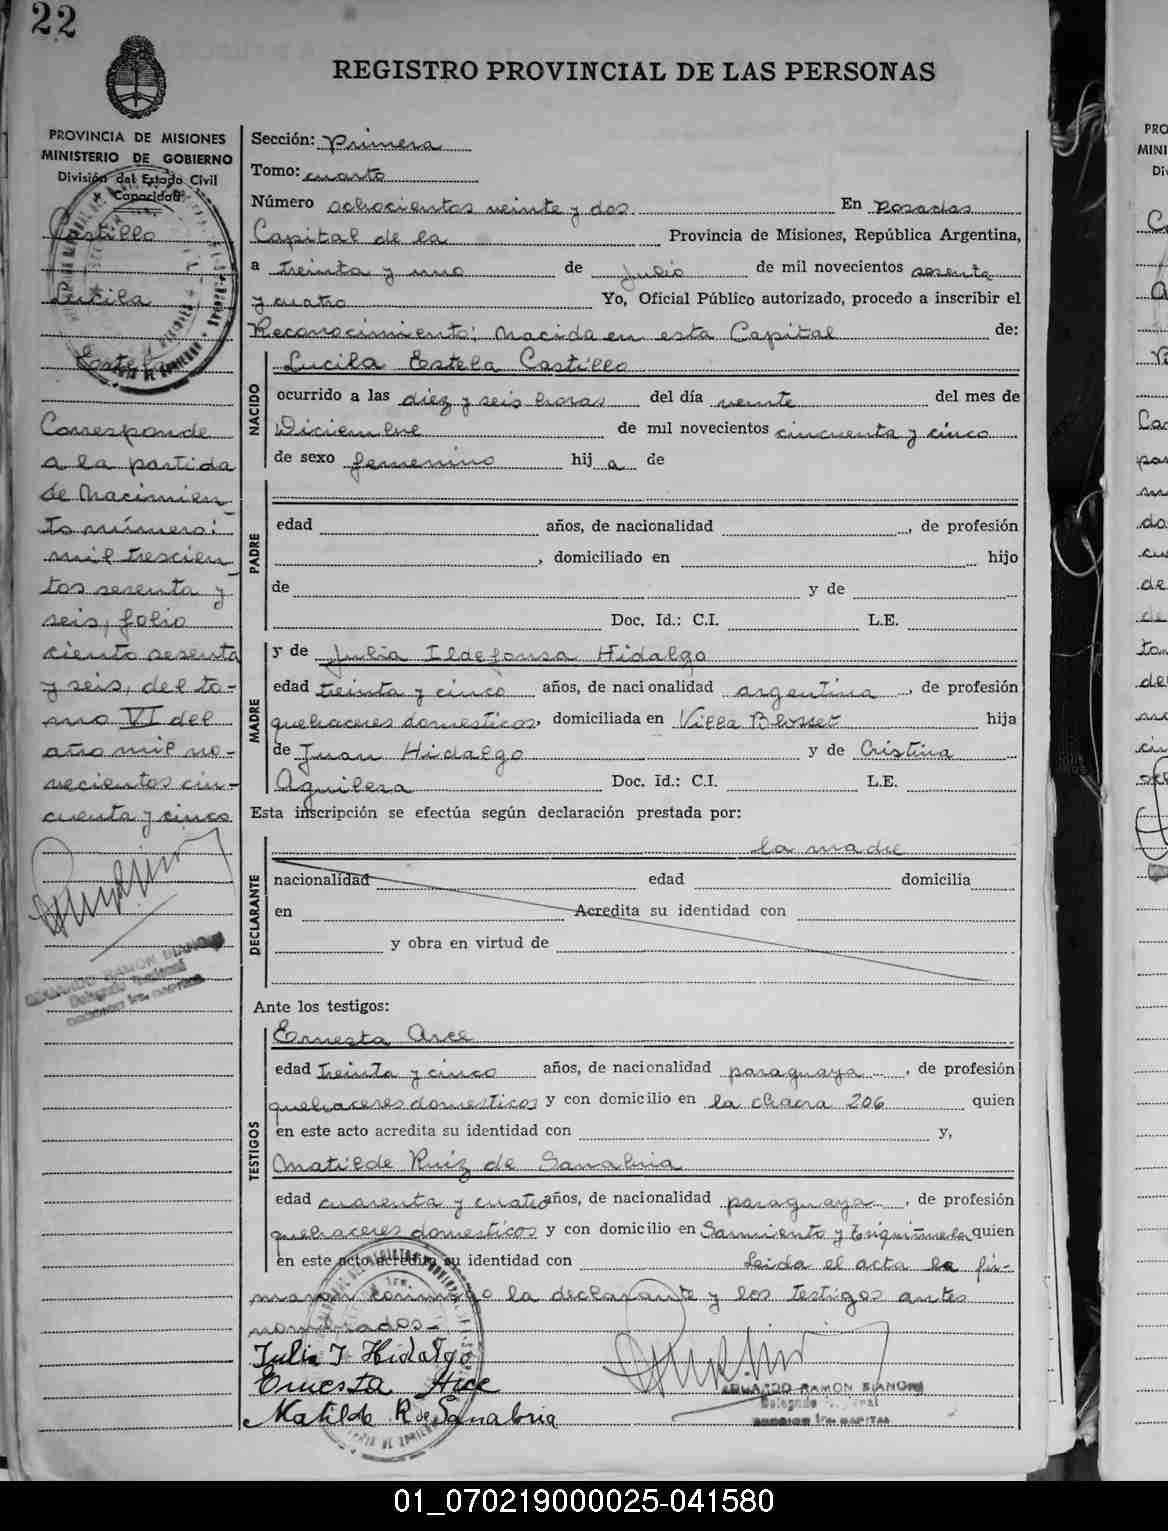 22
REGISTRO PROVINCIAL DE LAS PERSONAS
PROVINCIA DE MISIONES
MINISTERIO DE GOBIERNO
División del Estado Civil
Capacidad
Castillo
Lucila
Estela
Corresponde
a la partida
de Nacimien_
to número:
mil trescien_
tos sesenta y
seis, folio
ciento sesenta
y seis, del to-
mo VI del
año mil no-
vecientos cin-
cuenta y cinco
EDUARDO RAMON BIANCHI
Delegado
Sección: Primera
Tomo: cuarto
Número ochocientos veinte y dos En Posadas
Capital de la Provincia de Misiones, República Argentina,
a treinta y uno de Julio de mil novecientos sesenta
y cuatro Yo, Oficial Público autorizado, procedo a inscribir el
Reconocimiento; Nacida en esta Capital de:
NACIDO
Lucila Estela Castillo
ocurrido a las diez y seis horas del día veinte del mes de
Diciembre de mil novecientos cincuenta y cinco
de sexo femenino hij a de
PADRE
edad años, de nacionalidad , de profesión
, domiciliado en hijo
de y de
Doc. Id.: C.I. L.E.
MADRE
y de Julia Ildefonsa Hidalgo
edad treinta y cinco años, de nacionalidad argentina, de profesión
quehaceres domesticos, domiciliada en Villa Blosset hija
de Juan Hidalgo y de Cristina
Aguilera Doc. Id.: C.I. L.E.
Esta inscripción se efectúa según declaración prestada por:
DECLARANTE
la madre
nacionalidad edad domicilia
en Acredita su identidad con
y obra en virtud de
Ante los testigos:
TESTIGOS
Ernesta Arce
edad treinta y cinco años, de nacionalidad paraguaya, de profesión
quehaceres domesticos y con domicilio en la chacra 206 quien
en este acto acredita su identidad con y,
Matilde Ruiz de Sanabria
edad cuarenta y cuatro años, de nacionalidad paraguaya, de profesión
quehaceres domesticos y con domicilio en Sarmiento y quien
en este acto acredita su identidad con Leida el acta la fir-
maron conmigo la declarante y los testigos antes
nombrados-
Julia I. Hidalgo
Ernesta Arce
Matilde R de Sanabria
EDUARDO RAMON BIANCHI
Delegado
01_070219000025-041580